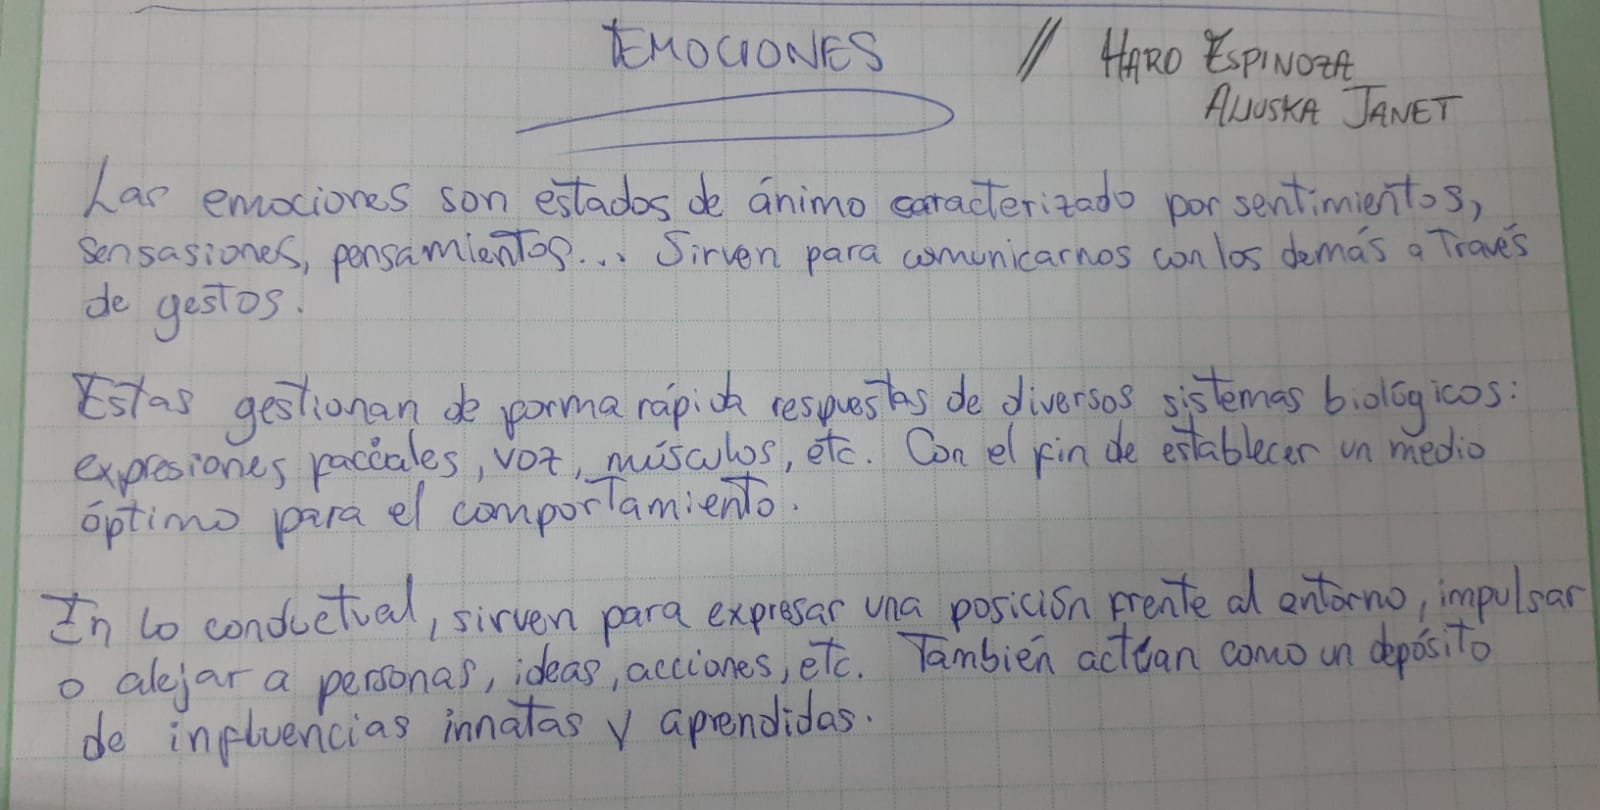 EMOCIONES // HARO ESPINOZA
ALIUSKA JANET
Las emociones son estados de ánimo caracterizado por sentimientos,
sensasiones, pensamientos... Sirven para comunicarnos con los demás a Través
de gestos.
Estas gestionan de forma rápida respuestas de diversos sistemas biológicos:
expresiones faciales, voz, músculos, etc. Con el fin de establecer un medio
óptimo para el comportamiento.
En lo conductual, sirven para expresar una posición frente al entorno, impulsar
o alejar a personas, ideas, acciones, etc. También actúan como un depósito
de influencias innatas y aprendidas.